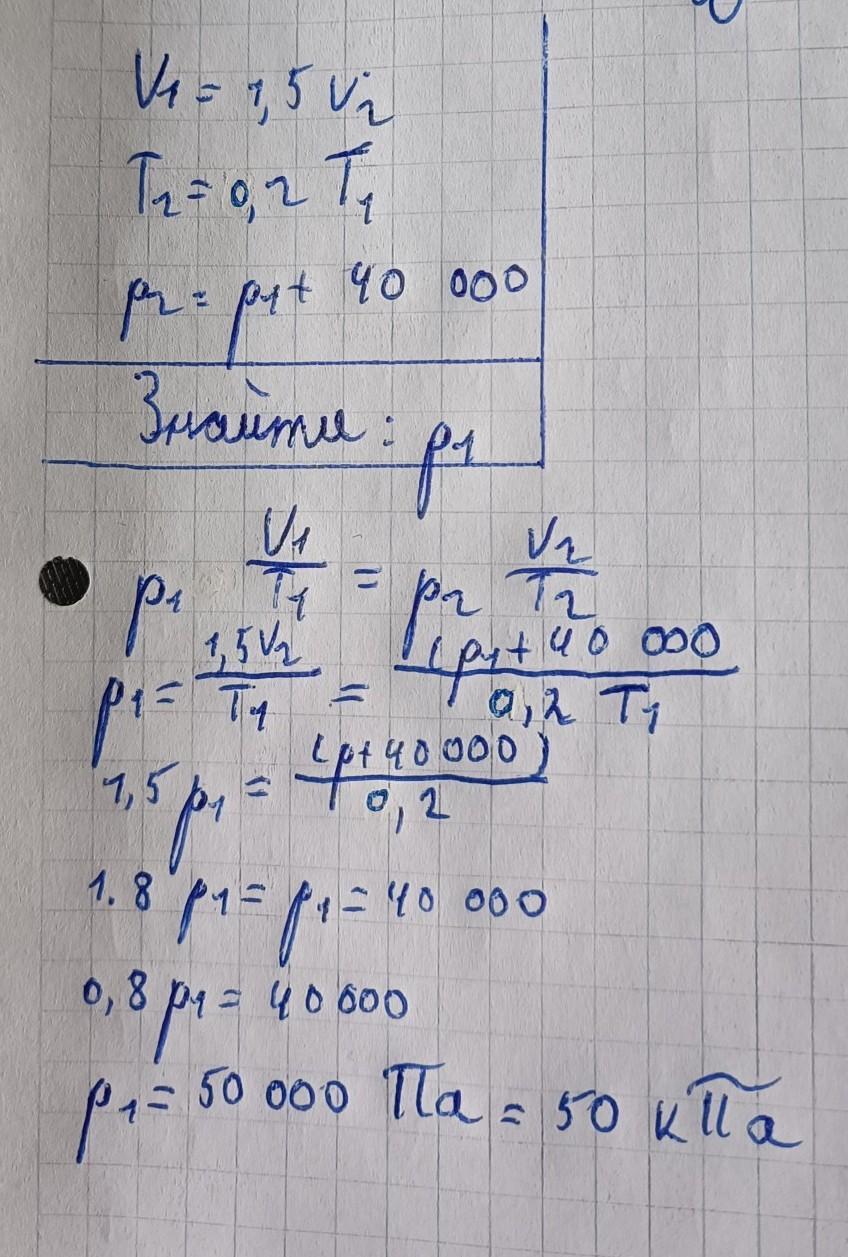 V1 = 1,5 V2
T2 = 0,2 T1
p2 = p1 + 40 000
Знайти : p1
p1 V1/T1 = p2 V2/T2
p1 = 1,5V2/T1 = (p1 + 40 000/0,2 T1
1,5 p1 = (p+40000)/0,2
1.8 p1 = p1 = 40 000
0,8 p1 = 40000
p1 = 50 000 Па = 50 кПа